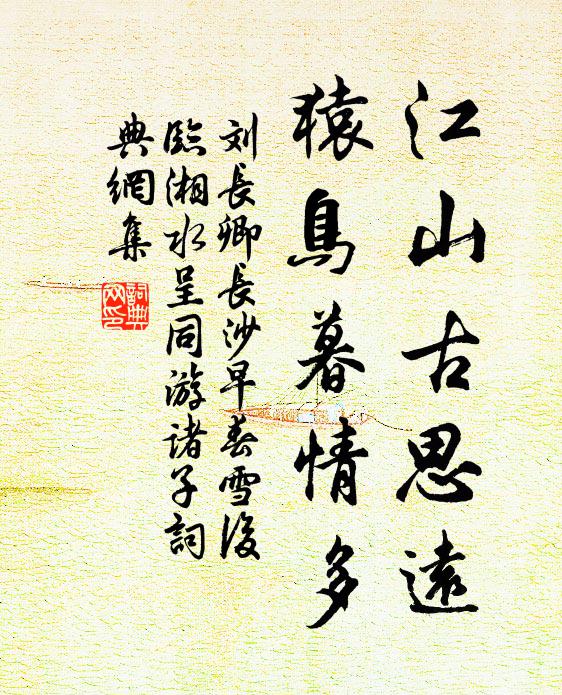 江山古思遠
猿鳥暮情多
刘長卿長沙早春雪後
臨湘水呈同游諸子詞
典網集
詞典
网印